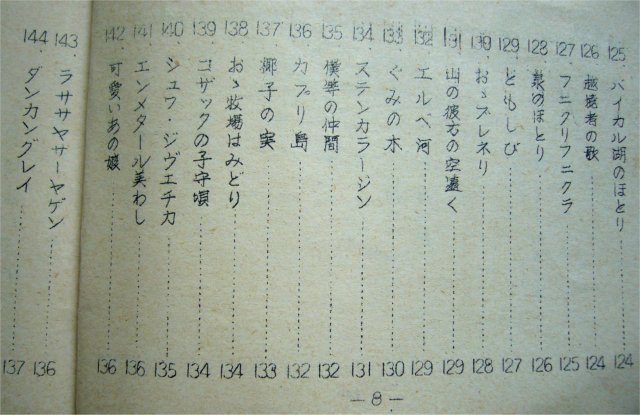 125. バイカル湖のほとり 124
126. 越境者の歌 124
127. フニクリフニクラ 125
128. 泉のほとり 126
129. ともしび 127
130. おゝブレネリ 128
131. 山の彼方の空遠く 129
132. エルベ河 129
133. ぐみの木 130
134. ステンカラージン 131
135. 僕等の仲間 132
136. カプリ島 132
137. 椰子の実 133
138. おゝ牧場はみどり 134
139. コザックの子守唄 134
140. シュワ・ジヴエチカ 135
141. エンメタール美わし 136
142. 可愛いあの娘 136
143. ラササヤサーヤゲン 136
144. ダンカングレイ 137
—8—